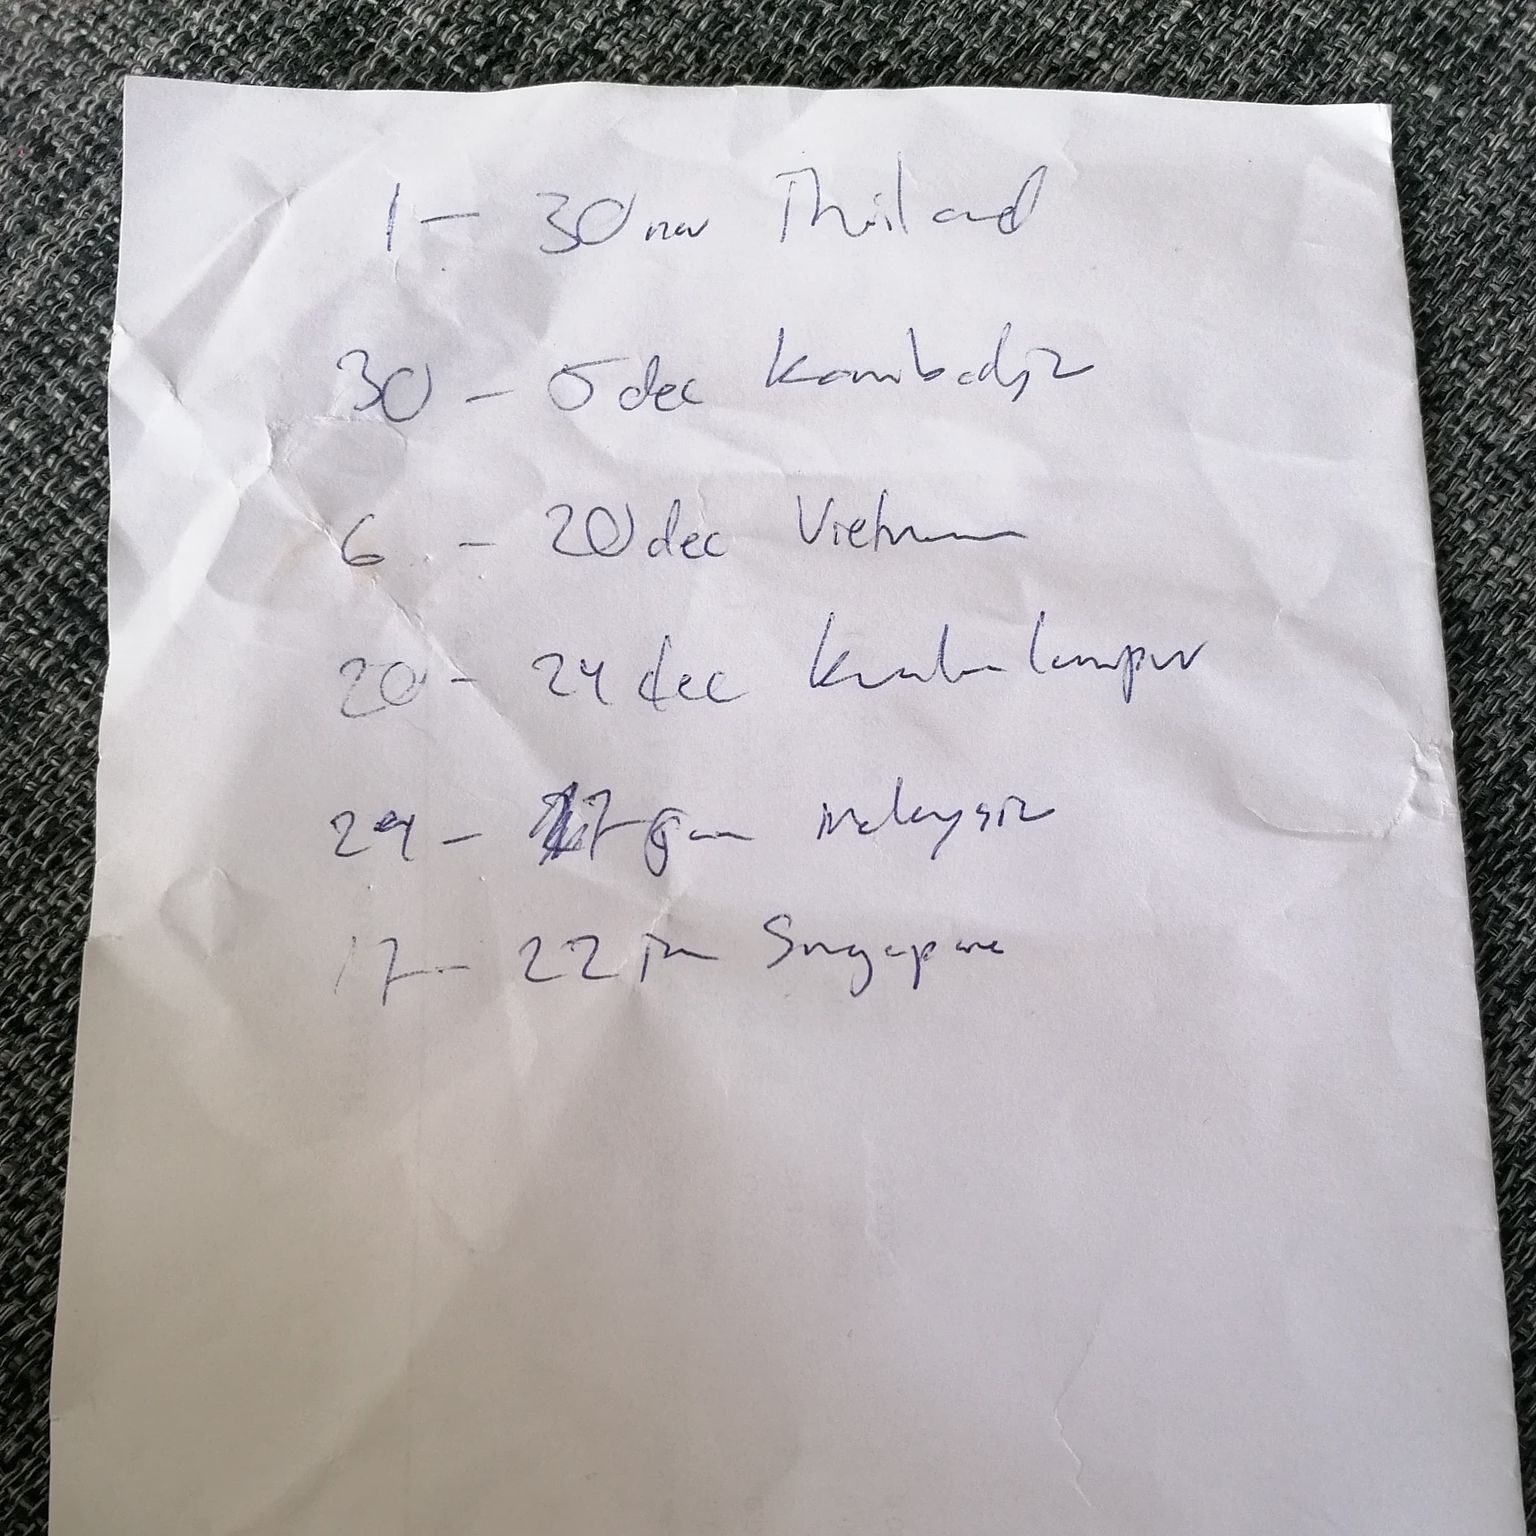 1 - 30 nov Thailand
30 - 5 dec Kambodja
6 - 20 dec Vietnam
20 - 24 dec Kuala lumpur
24 - 17 jan malaysia
17 - 22 jan Singapore